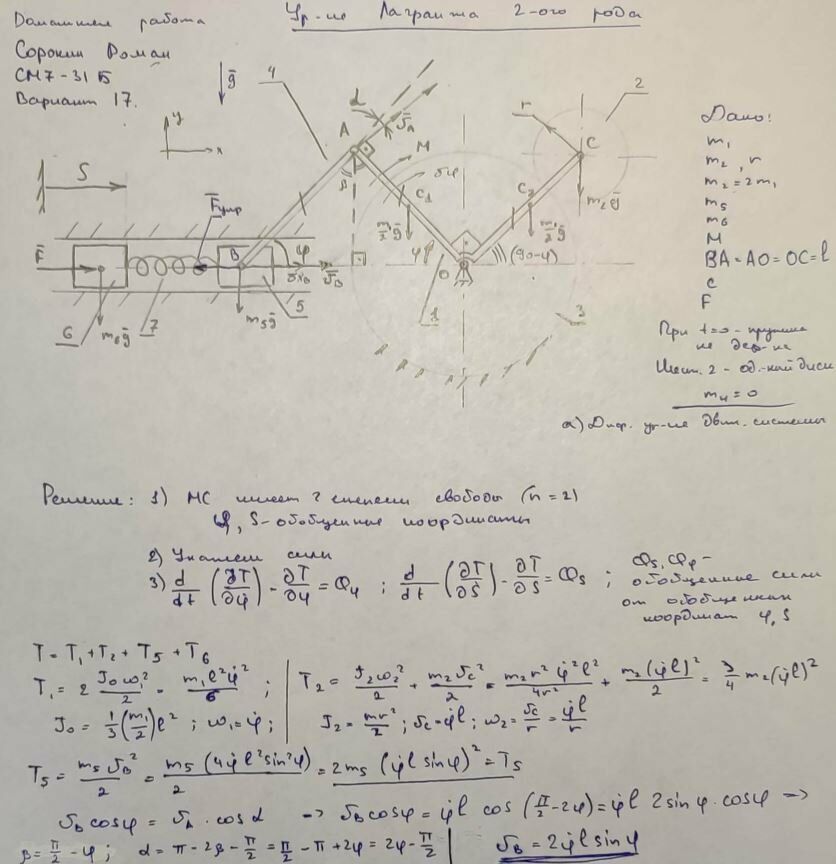 Ур-ие Лагранжа 2-ого рода
Домашняя работа
Сорокин Роман
СМ7-31Б
Вариант 17.
g̅
4
α
2
y
x
A
v̅_A
M
r
C
S
β
δφ
C₁
C₂
m₂g̅
F̅упр
m₁/2 g̅
m₁/2 g̅
F̅
B
φ
φ
O
(90-φ)
δx_B
v̅_B
5
6
7
m₆g̅
m₅g̅
1
3
Дано:
m₁
m₂, r
m₂ = 2m₁
m₅
m₆
M
BA = AO = OC = l
c
F
При t=0 - пружина
не деф-на
Шест. 2 - од-ный диск
m₄ = 0
а) Диф. ур-ие движ. системы
Решение: 1) МС имеет 2 степени свободы (n = 2)
φ, S - обобщенные координаты
2) Укажем силы
3) d/dt (∂T/∂φ̇) - ∂T/∂φ = Q_φ ; d/dt (∂T/∂Ṡ) - ∂T/∂S = Q_S ;
Q_S, Q_φ -
обобщенные силы
от обобщенных
координат φ, S
T = T₁ + T₂ + T₅ + T₆
T₁ = 2 J₀ω₁²/2 = m₁l²φ̇²/6 ; T₂ = J₂ω₂²/2 + m₂v_C²/2 = m₂r²φ̇²l²/4r² + m₂(φ̇l)²/2 = 3/4 m₂(φ̇l)²
J₀ = 1/3 (m₁/2) l² ; ω₁ = φ̇ ; J₂ = mr²/2 ; v_C = φ̇l ; ω₂ = v_C/r = φ̇l/r
T₅ = m₅v_B²/2 = m₅(4φ̇l²sin²φ)/2 = 2m₅(φ̇l sinφ)² = T₅
v_B cosφ = v_A · cosα → v_B cosφ = φ̇l cos(π/2 - 2φ) = φ̇l 2sinφ · cosφ →
β = π/2 - φ ; α = π - 2β - π/2 = π/2 - π + 2φ = 2φ - π/2 v_B = 2φ̇l sinφ